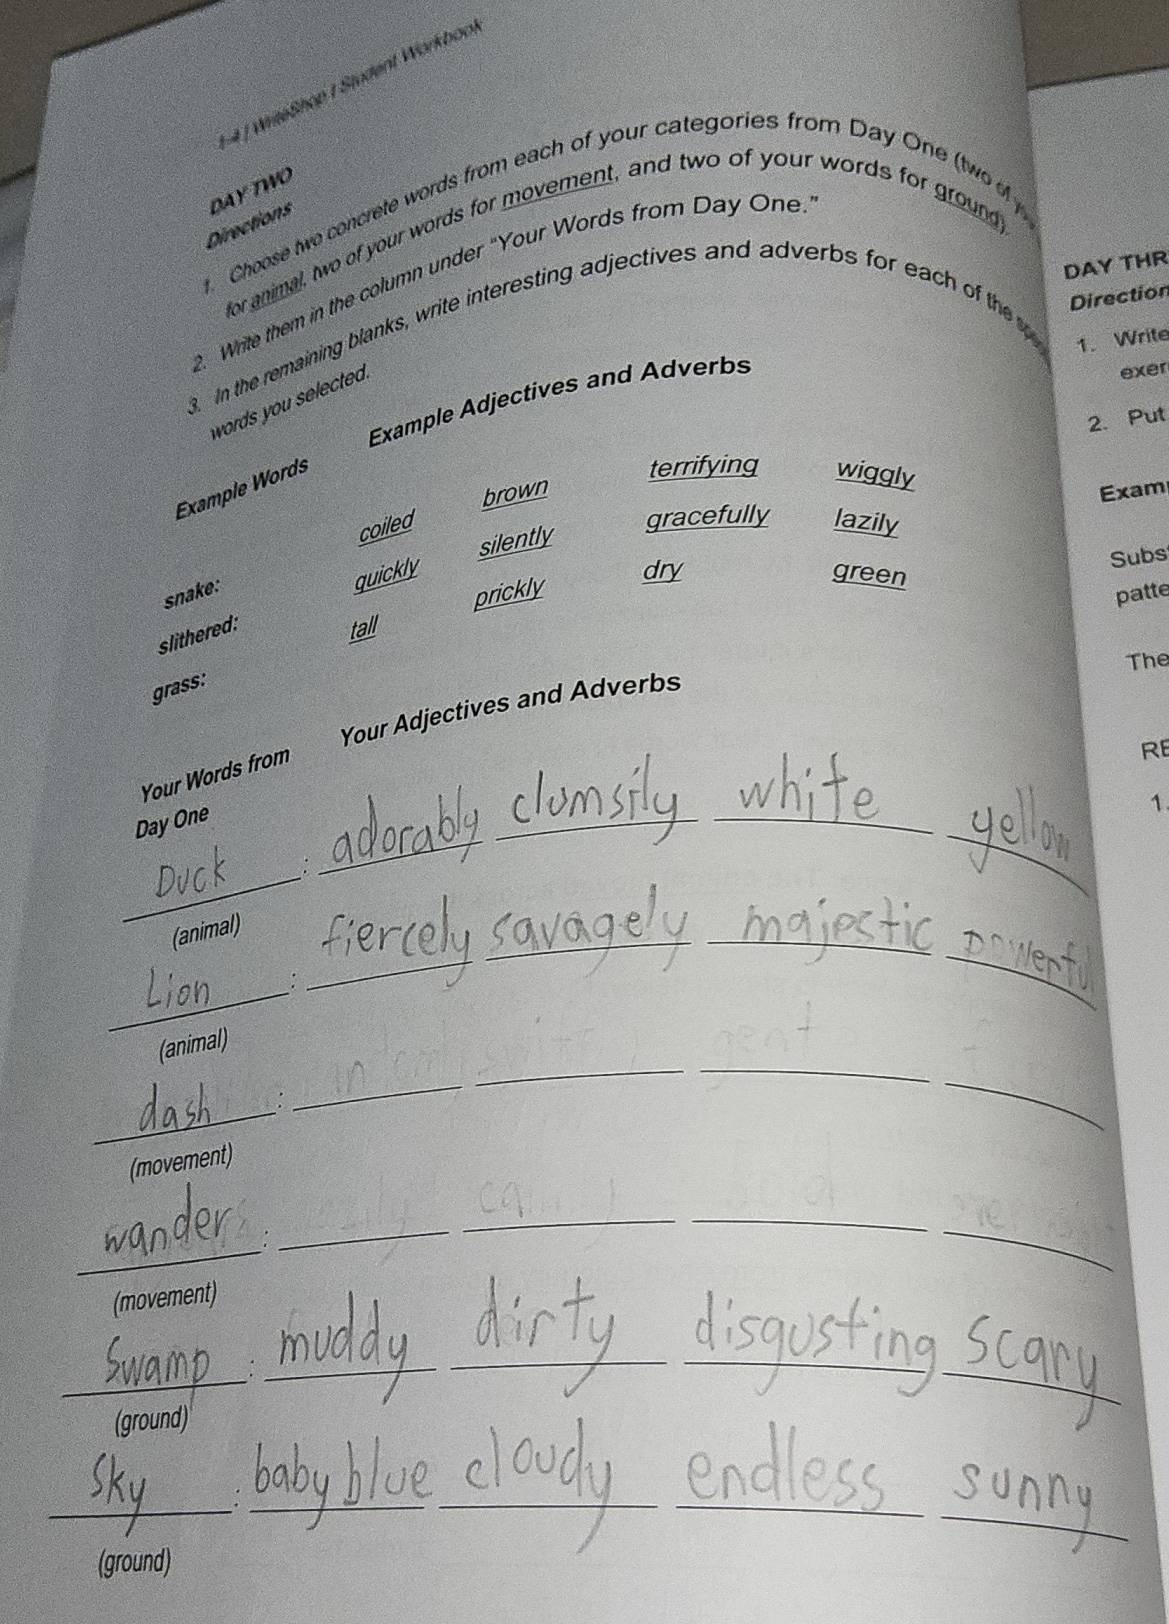 1-4 | WriteShop I Student Workbook
DAY TWO
Directions
1. Choose two concrete words from each of your categories from Day One (two of
for animal, two of your words for movement, and two of your words for ground).
2. Write them in the column under "Your Words from Day One."
3. In the remaining blanks, write interesting adjectives and adverbs for each of the
words you selected.
Example Words Example Adjectives and Adverbs
snake: coiled brown terrifying wiggly
slithered: quickly silently gracefully lazily
grass: tall prickly dry green
Your Words from Your Adjectives and Adverbs
Day One
Duck : adorably clumsily white yellow
(animal)
Lion : fiercely savagely majestic powerful
(animal)
dash :
(movement)
wanders :
(movement)
Swamp : muddy dirty disgusting scary
(ground)
Sky : baby blue cloudy endless sunny
(ground)
DAY THR
Direction
1. Write
exer
2. Put
Exam
Subs
patte
The
RE
1.